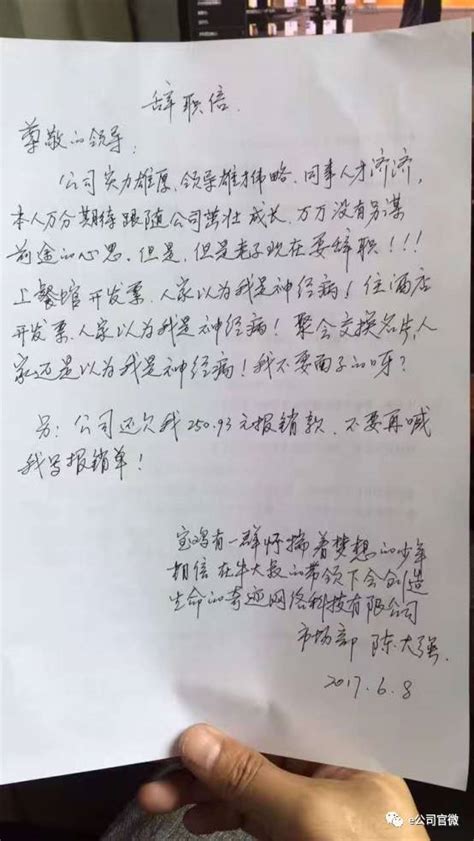 辞职信.
尊敬的领导：
公司实力雄厚、领导雄才伟略、同事人才济济，
本人万分期待跟随公司茁壮成长，万万没有另谋
前途的心思。但是，但是老子现在要辞职！！！
上餐馆开发票，人家以为我是神经病！住酒店
开发票，人家以为我是神经病！聚会交换名片，人
家还是以为我是神经病！我不要面子的呀？
另：公司还欠我250.93元报销款，不要再喊
我写报销单！
宝鸡有一群怀揣着梦想的少年
相信在牛大叔的带领下会创造
生命的奇迹网络科技有限公司
市场部 陈大强.
2017.6.8
e公司官微